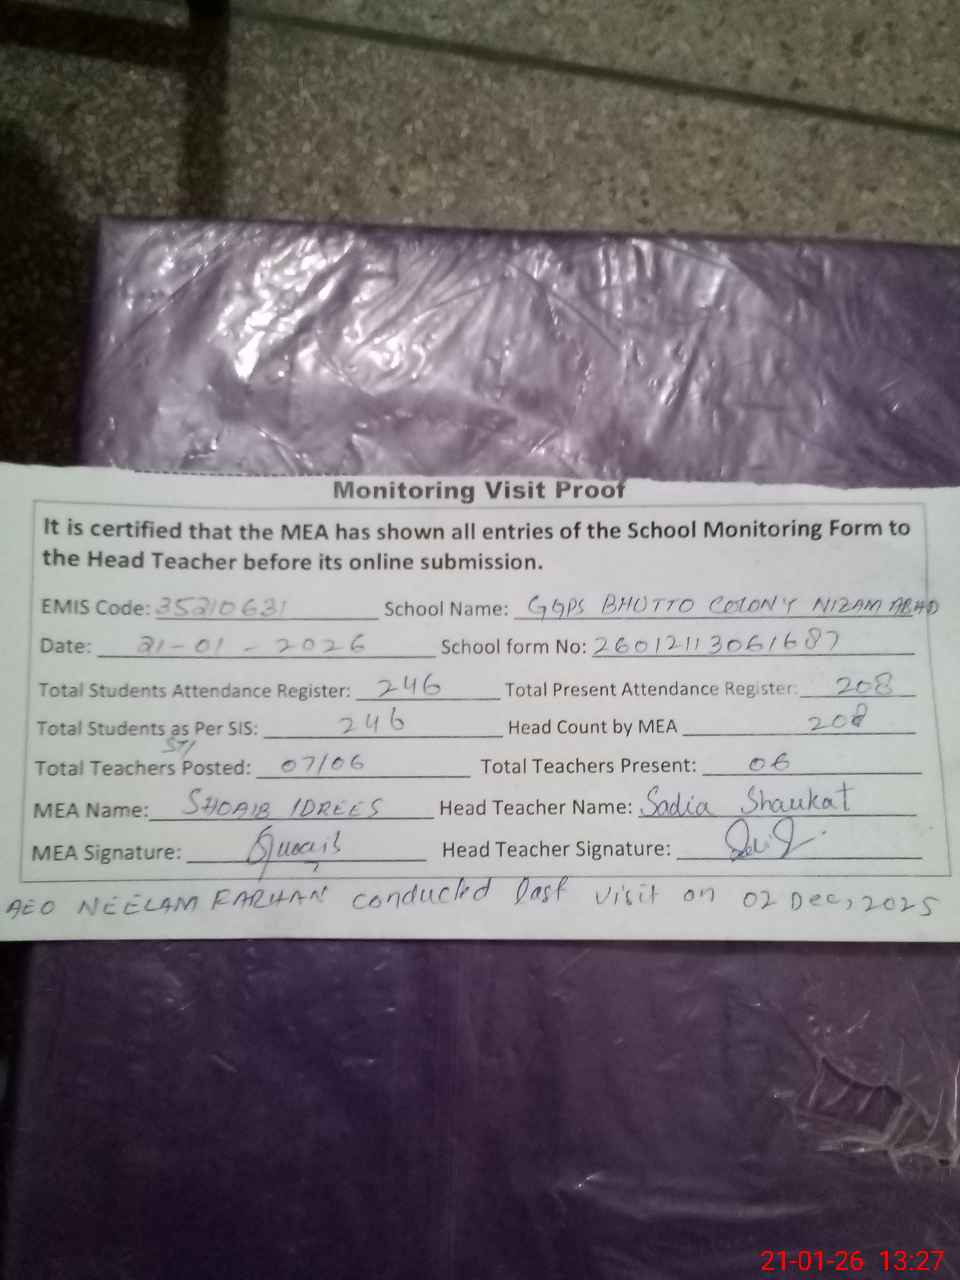 Monitoring Visit Proof
It is certified that the MEA has shown all entries of the School Monitoring Form to
the Head Teacher before its online submission.
EMIS Code: 35210631 School Name: GGPS BHUTTO COLONY NIZAM ABAD
Date: 21-01-2026 School form No: 26012113061687
Total Students Attendance Register: 246 Total Present Attendance Register: 208
Total Students as Per SIS: 246 Head Count by MEA 208
STI
Total Teachers Posted: 07/06 Total Teachers Present: 06
MEA Name: SHOAIB IDREES Head Teacher Name: Sadia Shaukat
MEA Signature: Head Teacher Signature:
AEO NEELAM FARHAN conducted last visit on 02 Dec, 2025
21-01-26 13:27